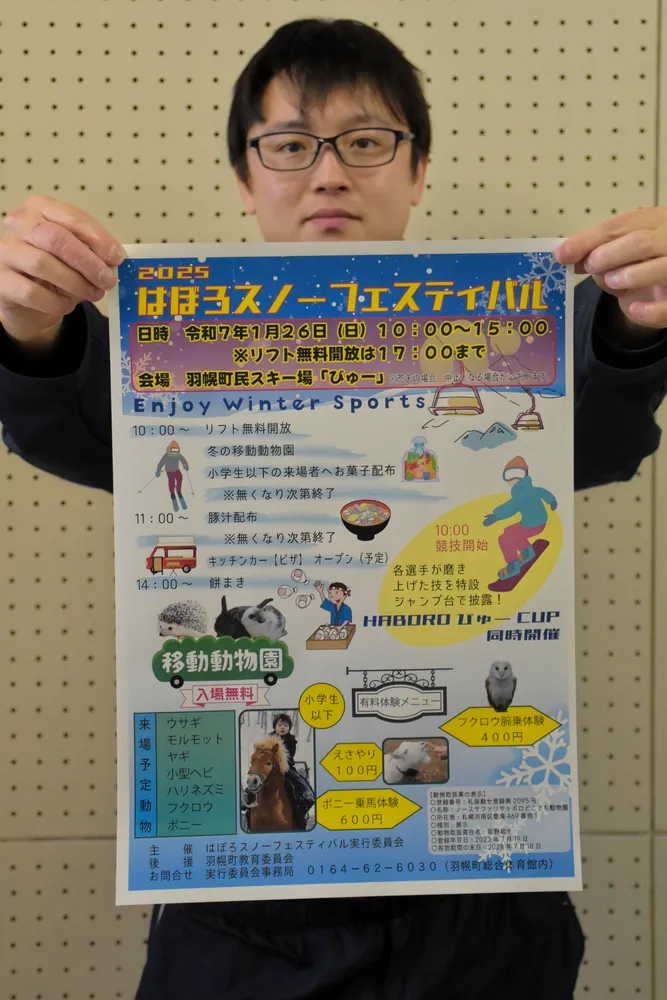 2025
はぼろスノーフェスティバル
日時 令和7年1月26日(日)10:00〜15:00
※リフト無料開放は17:00まで
会場 羽幌町民スキー場「びゅー」
Enjoy Winter Sports
10:00〜 リフト無料開放
冬の移動動物園
小学生以下の来場者へお菓子配布
※無くなり次第終了
11:00〜 豚汁配布
※無くなり次第終了
キッチンカー【ピザ】オープン(予定)
14:00〜 餅まき
10:00
競技開始
各選手が磨き
上げた技を特設
ジャンプ台で披露!
HABORO びゅー CUP
同時開催
移動動物園
入場無料
来場予定動物
ウサギ
モルモット
ヤギ
小型ヘビ
ハリネズミ
フクロウ
ポニー
小学生
以下
有料体験メニュー
フクロウ腕乗体験
400円
えさやり
100円
ポニー乗馬体験
600円
【動物取扱業の表示】
○登録番号:札保動セ登録第2095号
○名称:ノースサファリサッポロどこでも動物園
○所在地:札幌市南区豊滝469番地1
○種別:展示
主催 はぼろスノーフェスティバル実行委員会
後援 羽幌町教育委員会
お問合せ 実行委員会事務局 0164-62-6030(羽幌町総合体育館内)